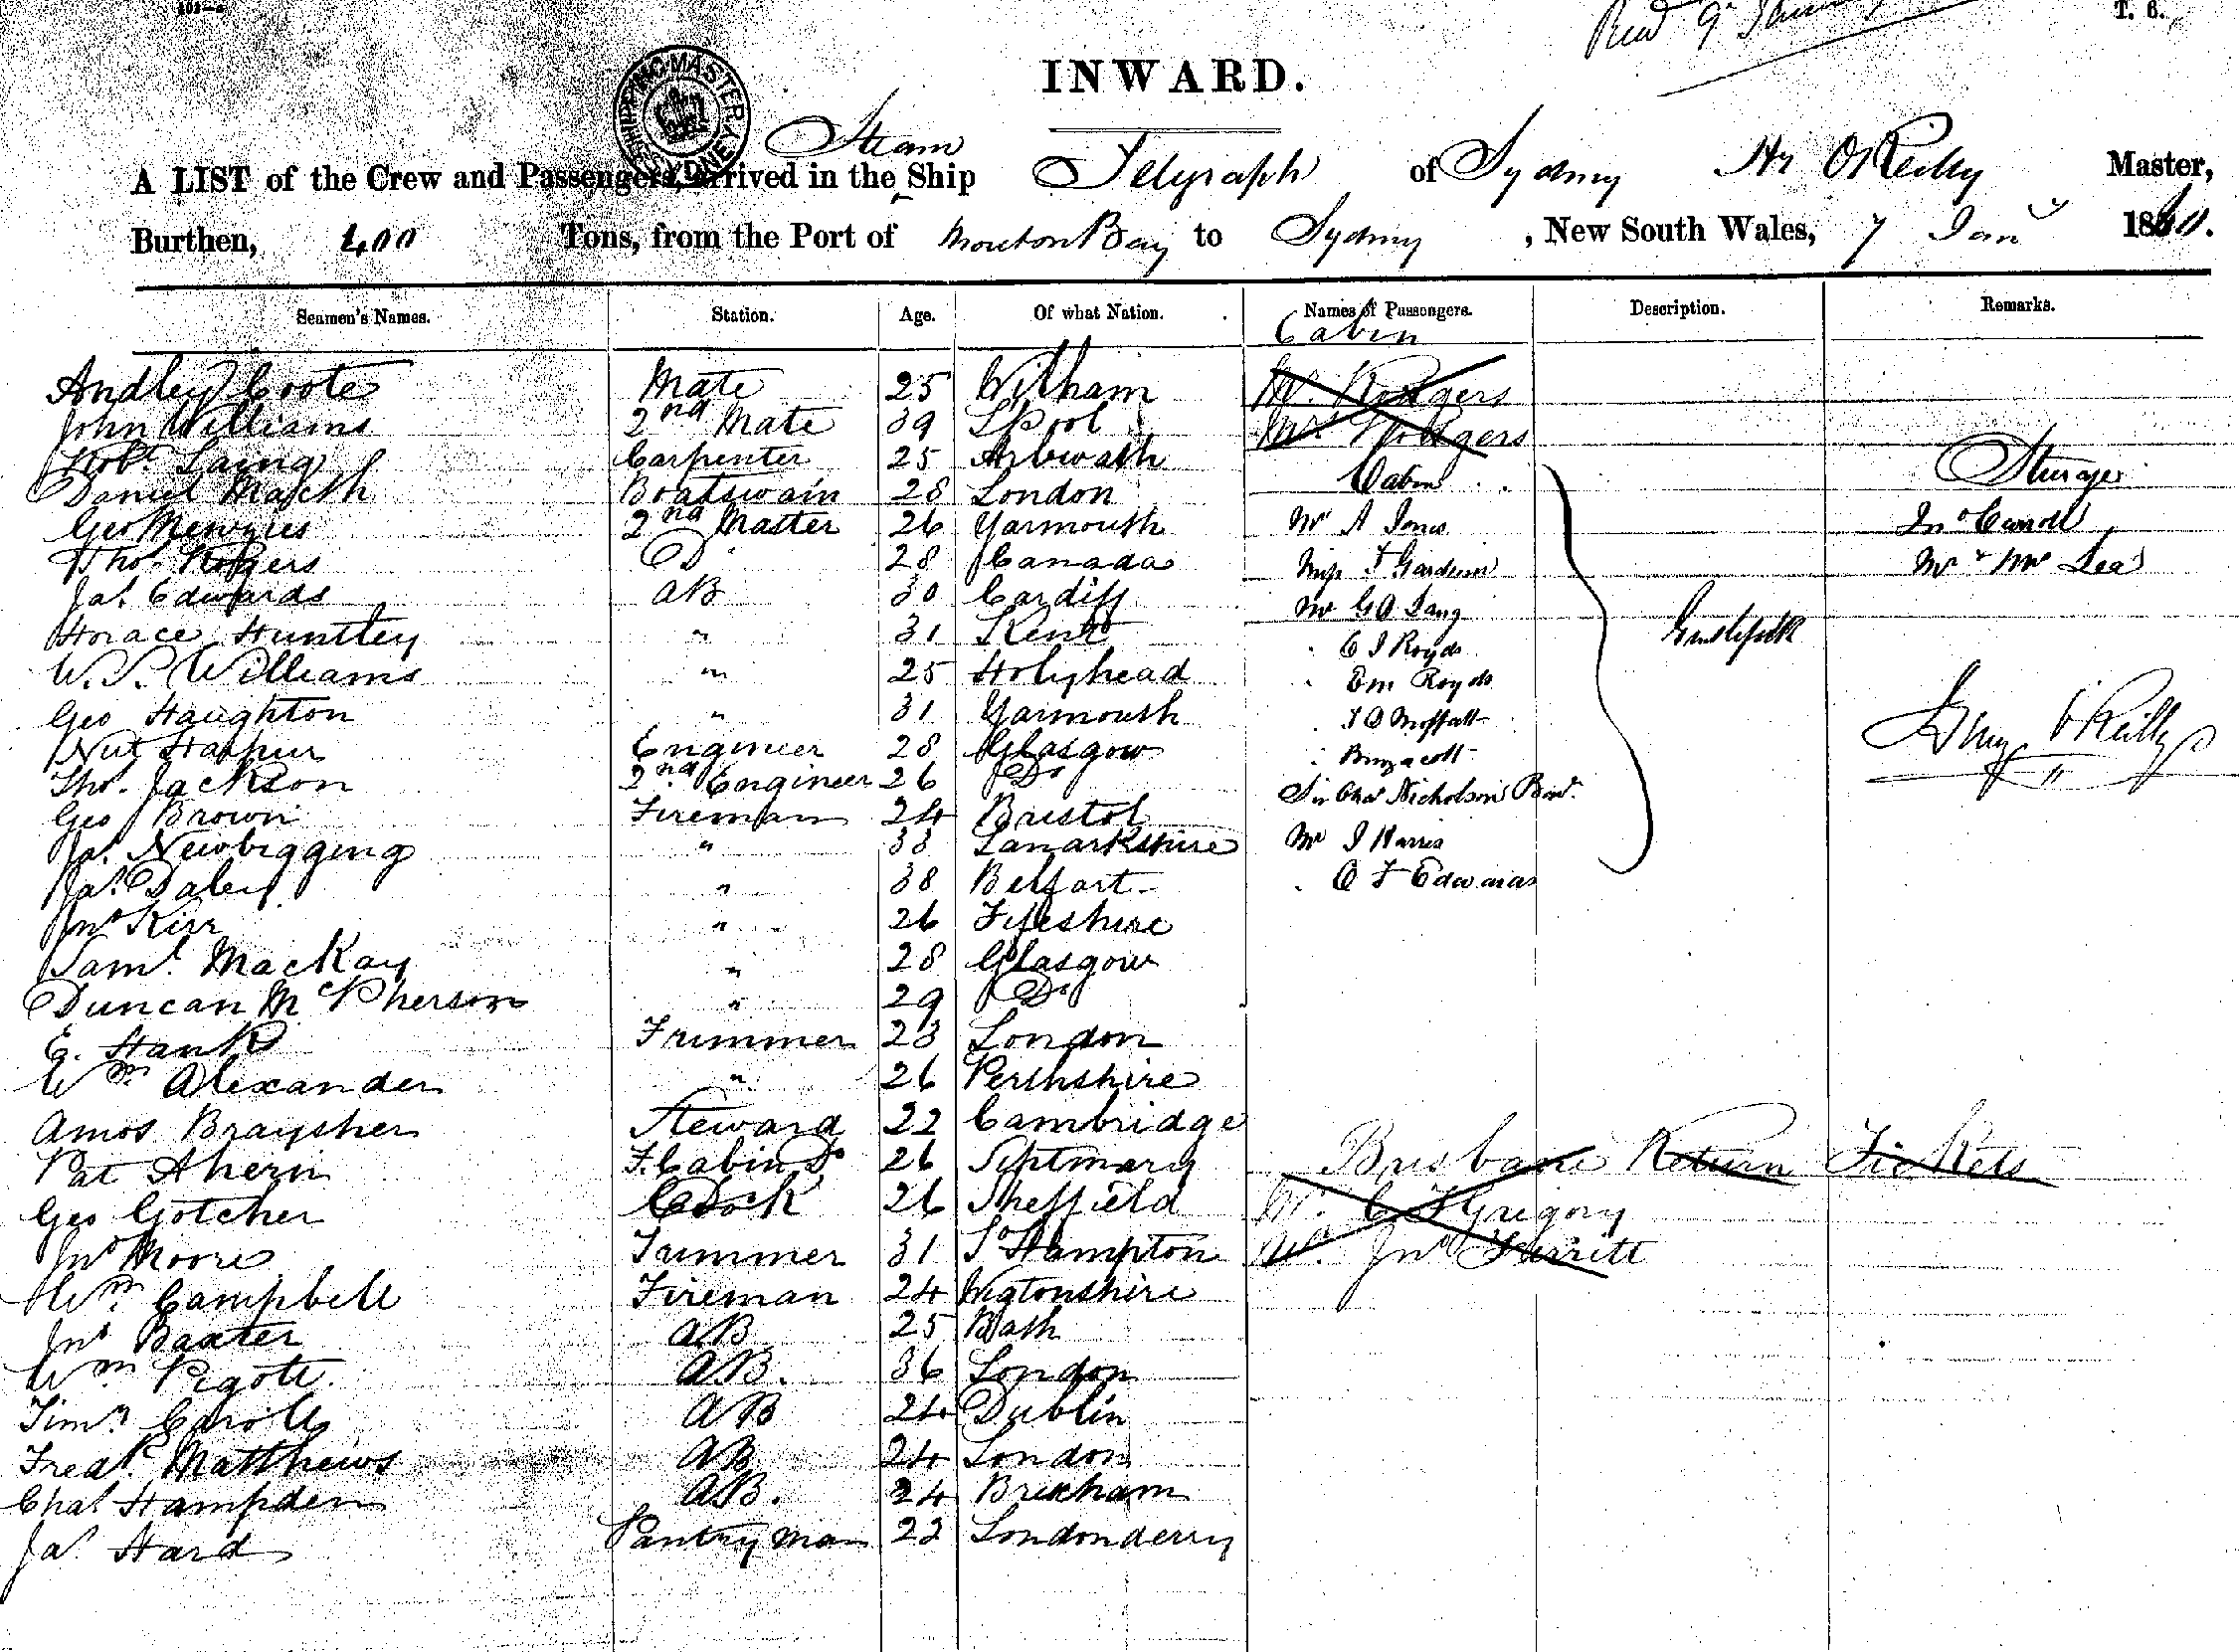 T. 6.
INWARD.
SHIPPING MASTER SYDNEY
Steam
A LIST of the Crew and Passengers, arrived in the Ship Telegraph of Sydney Hy O'Reilly Master,
Burthen, 400 Tons, from the Port of Moreton Bay to Sydney, New South Wales, 7 Jany 1860.
Seamen's Names. Station. Age. Of what Nation. Names of Passengers. Description. Remarks.
Cabin
Andley Coote Mate 25 Witham Mr. Rodgers
John Williams 2nd Mate 39 LPool Mrs Rodgers
Robt. Laing Carpenter 25 Arbroath Cabin Steerage
Daniel Boatswain 28 London
Geo Menzies 2nd Master 26 Yarmouth Mr A Jones Jno Carroll
Thos. Rogers Do 28 Canada Miss F Mr & Mrs Lea
Jas. Edwards AB 30 Cardiff Mr G A Lang
Horace Huntley " 31 Kent C J Royds
W. S. Williams " 25 Holyhead Em Royds
Geo Haughton " 31 Yarmouth T O Moffatt
Harper Engineer 28 Glasgow Buzacott Henry O'Reilly
Thos. Jackson 2nd Engineer 26 Do Sir Chas Nicholson Bart.
Geo Brown Fireman 24 Bristol
Jas. Newbigging " 33 Lanarkshire Mr J Harris
Jas. Daley " 38 Belfast O F Edwards
Jno Kirr " 26 Fifeshire
Saml. MacKay " 28 Glasgow
Duncan McPherson " 29 Do
E. Hank Trimmer 23 London
Wm. Alexander " 26 Perthshire
Amos Braysher Steward 22 Cambridge
Pat Ahern F. Cabin Do 26 Brisbane Return Tickets
Geo Gotcher Cook 26 Sheffield Mr. C F Grigory
Jno Moore Trimmer 31 So Hampton Mr. Jno Ferritt
Wm. Campbell Fireman 24 Wigtonshire
Jno Baxter AB 25 Bath
Wm Pigott. AB. 36 London
Timy Caroll AB 24 Dublin
Fredk. Matthews AB 24 London
Chas Hampden AB. 24 Brixham
Jas. Hard Pantry Man 22 Londonderry